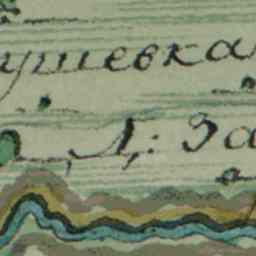 ушевка
Д: За